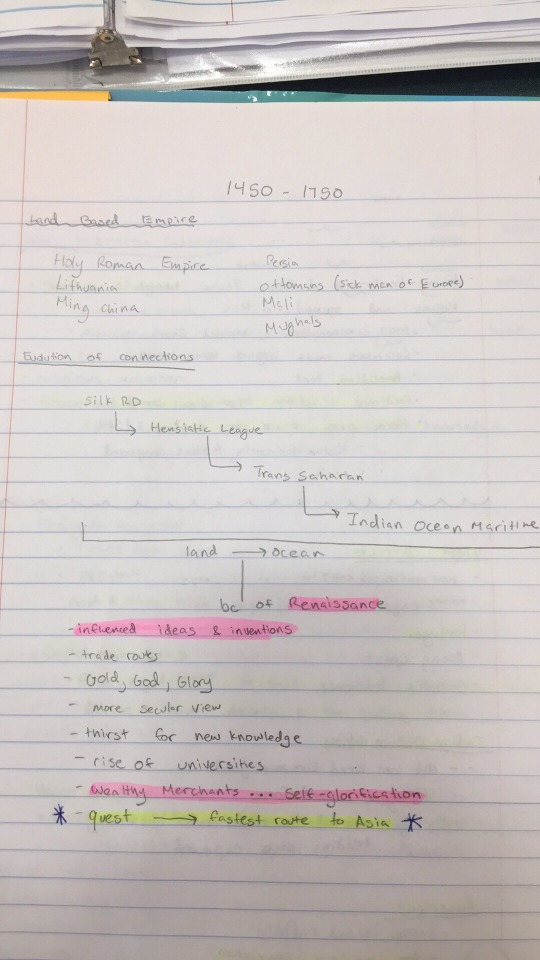 1450 - 1750
Land Based Empire
Holy Roman Empire
Lithuania
Ming China
Persia
Ottomans (sick man of Europe)
Mali
Mughals
Evolution of connections
Silk RD
Hensiatic League
Trans Saharan
Indian Ocean Maritime
land → ocean
bc of Renaissance
- influenced ideas & inventions
- trade routes
- Gold, God, Glory
- more secular view
- thirst for new knowledge
- rise of universities
- Wealthy Merchants ... self-glorification
* - quest → fastest route to Asia *